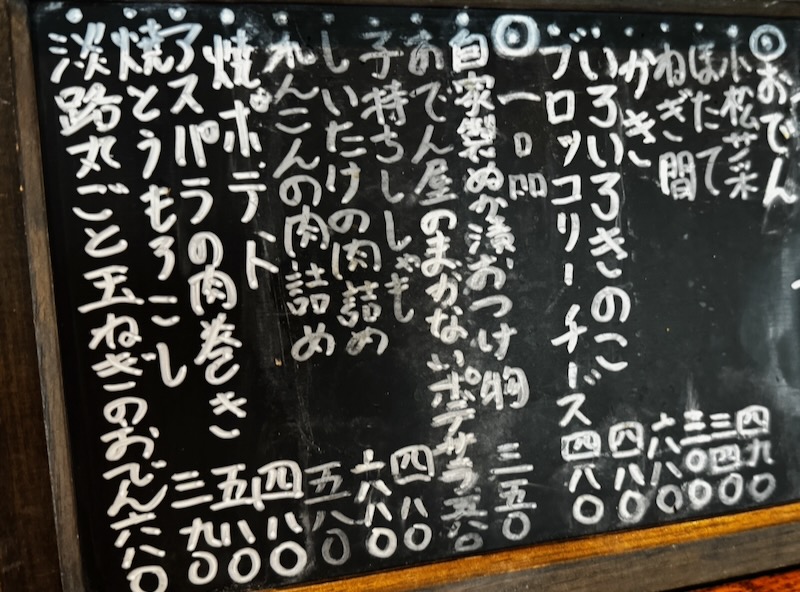 ◎おでん
小松菜 四九〇
ほたて 三四〇
ねぎ間 三〇〇
かき 六八〇
いろいろきのこ 四八〇
ブロッコリーチーズ 四八〇
◎一品
自家製ぬか漬おつけ物 三五〇
おでん屋のまかないポテサラ 五八〇
子持ちししゃも 四八〇
しいたけの肉詰め 六八〇
れんこんの肉詰め 五八〇
焼ポテト 四八〇
アスパラの肉巻き 五八〇
焼とうもろこし 三九〇
淡路丸ごと玉ねぎのおでん 六八〇